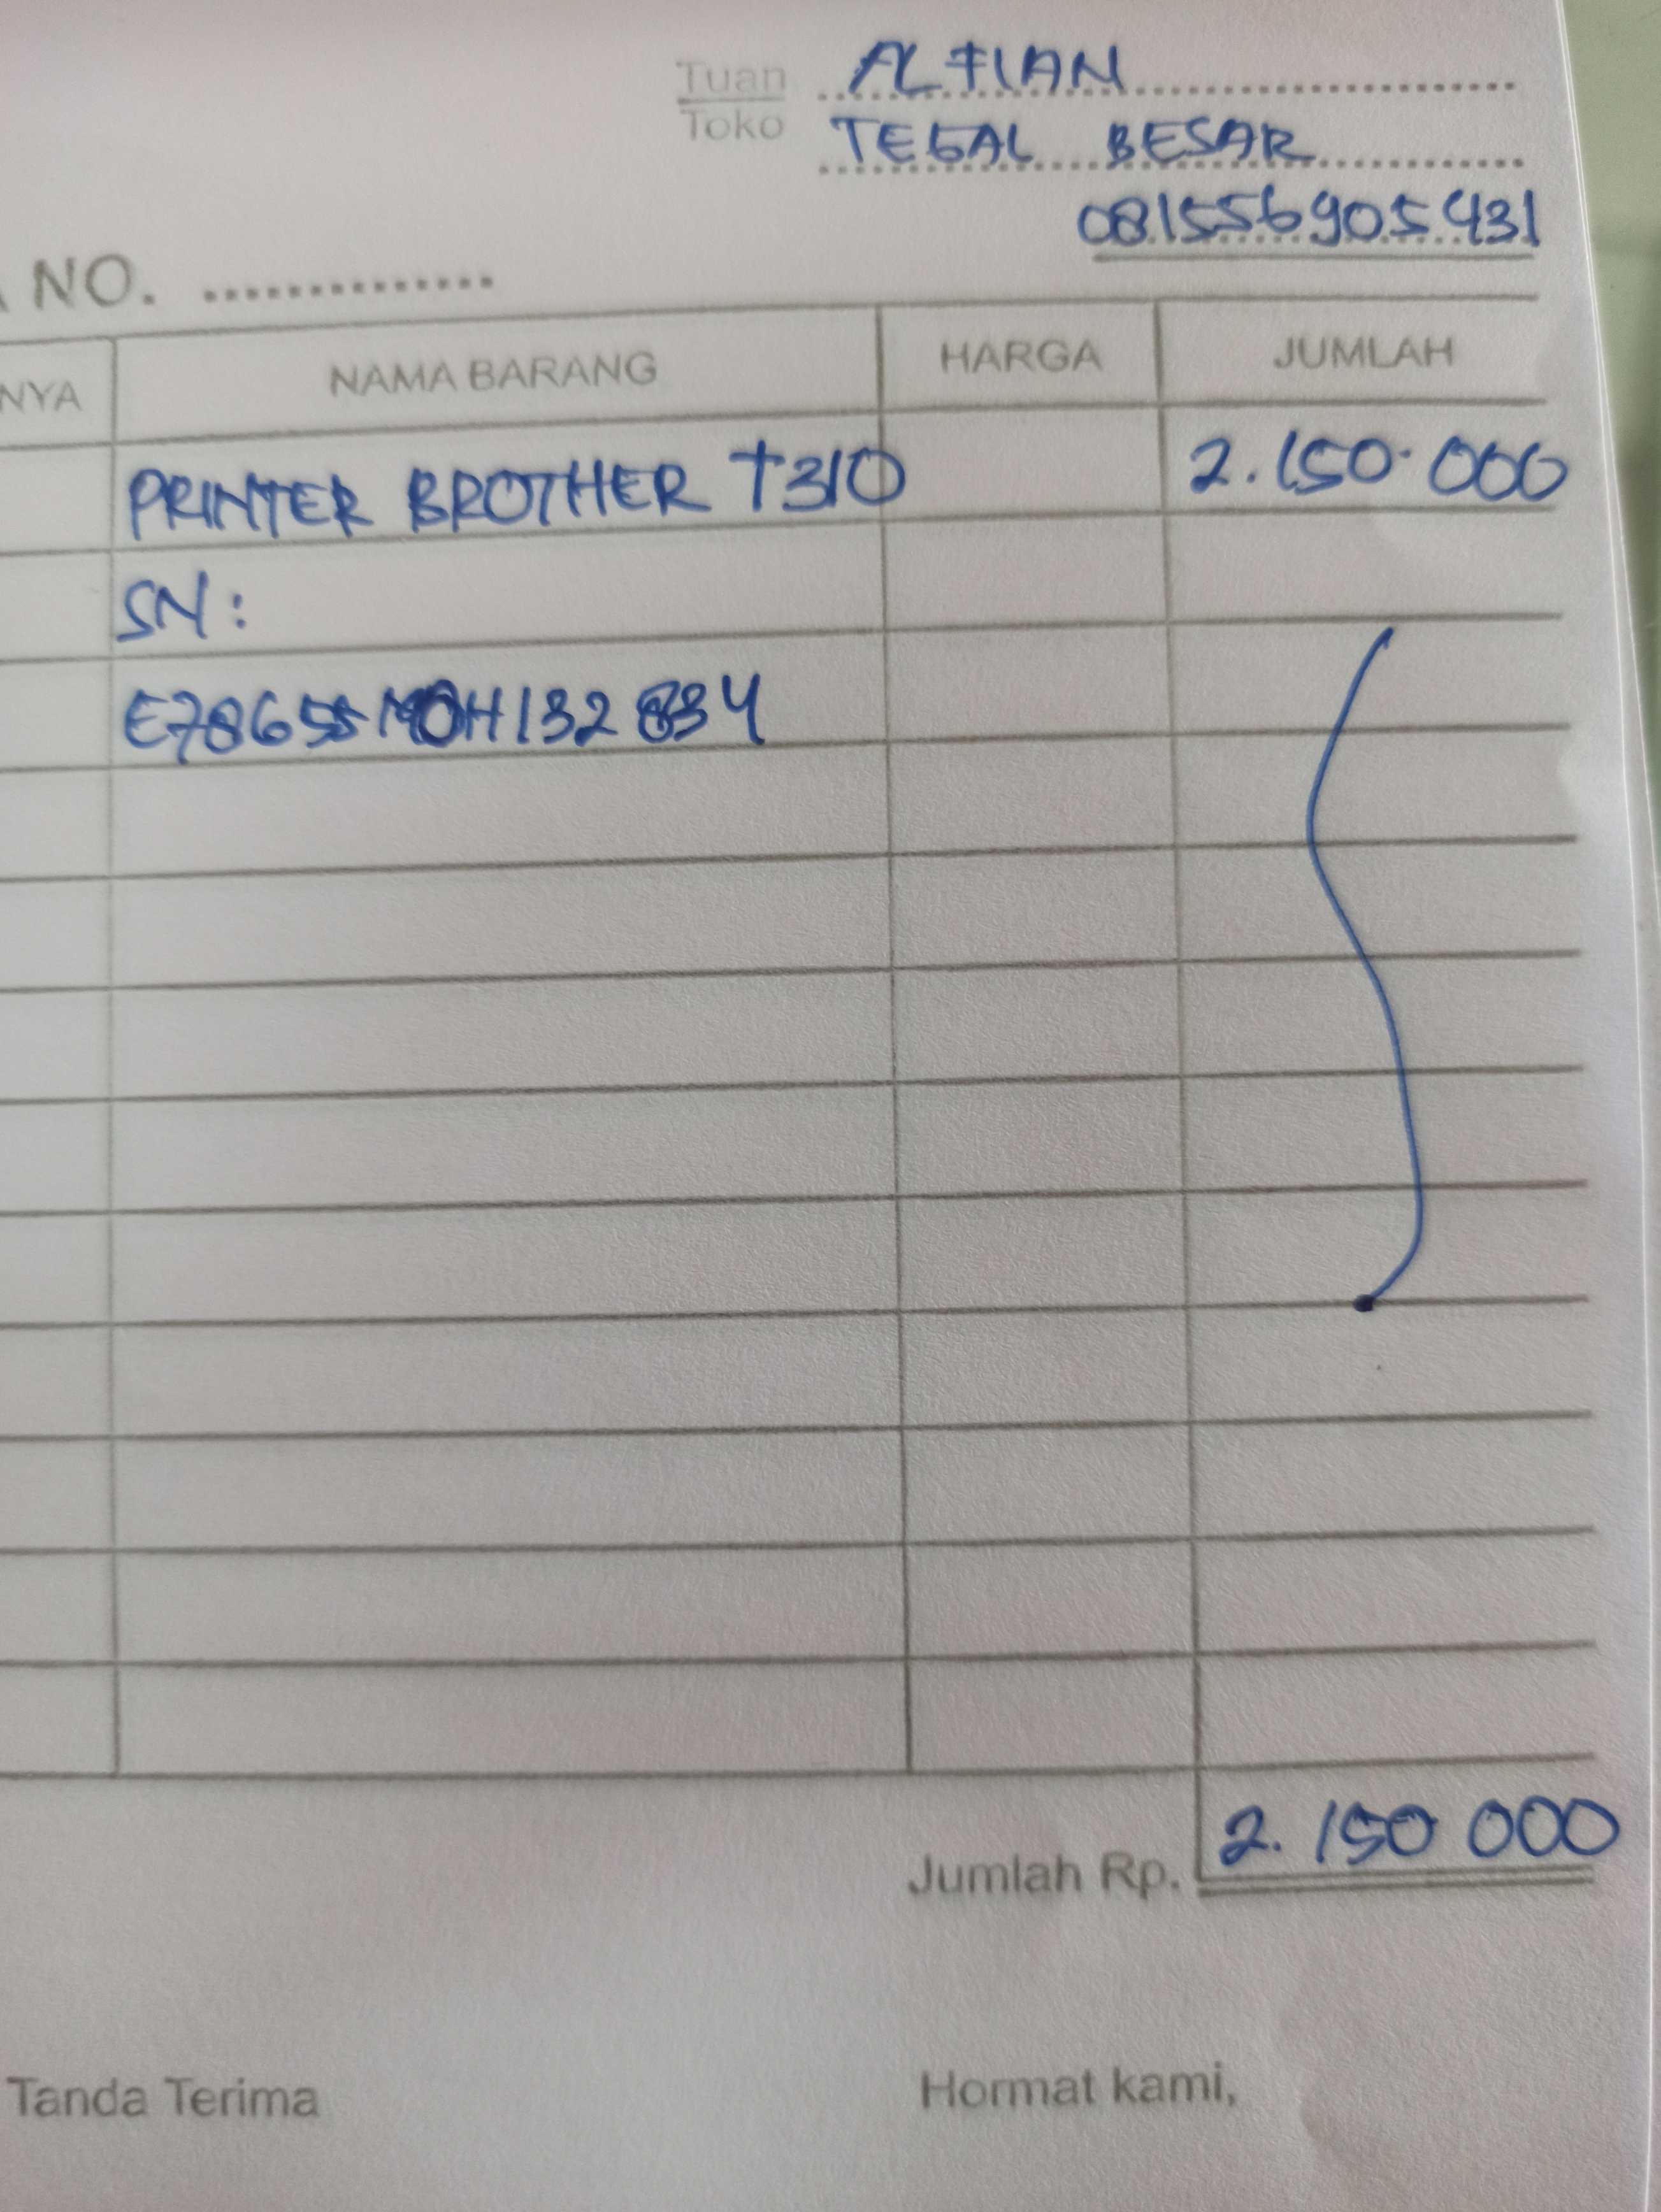 Tuan ALFIAN
Toko TEGAL BESAR
081556905431
NO. ..............
NYA NAMA BARANG HARGA JUMLAH
PRINTER BROTHER T310 2.150.000
SN:
Jumlah Rp. 2.150 000
Tanda Terima Hormat kami,